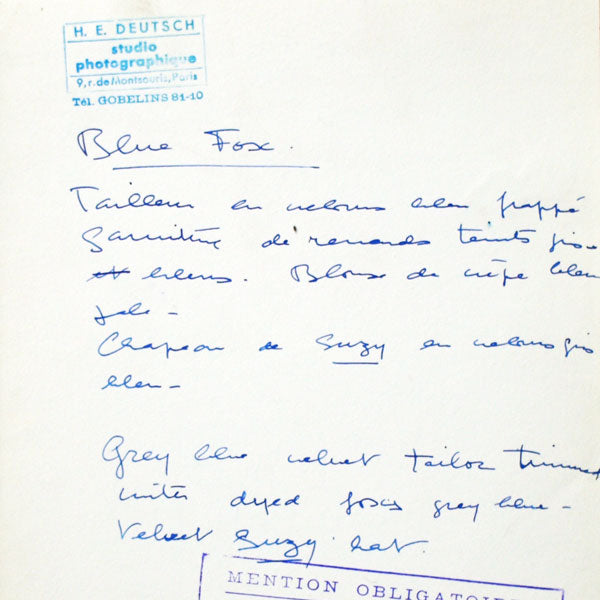 H. E. DEUTSCH
studio
photographique
9, r. de Montsouris, Paris
Tél. GOBELINS 81-10
Blue Fox.
Tailleur en velours bleu frappé
Garniture de renards teints gris-
bleus. Blouse de crêpe bleu
pale -
Chapeau de Suzy en velours gris
bleu -
Grey blue velvet tailor trimmed
dyed foxes grey blue -
Velvet Suzy hat.
MENTION OBLIGATOI